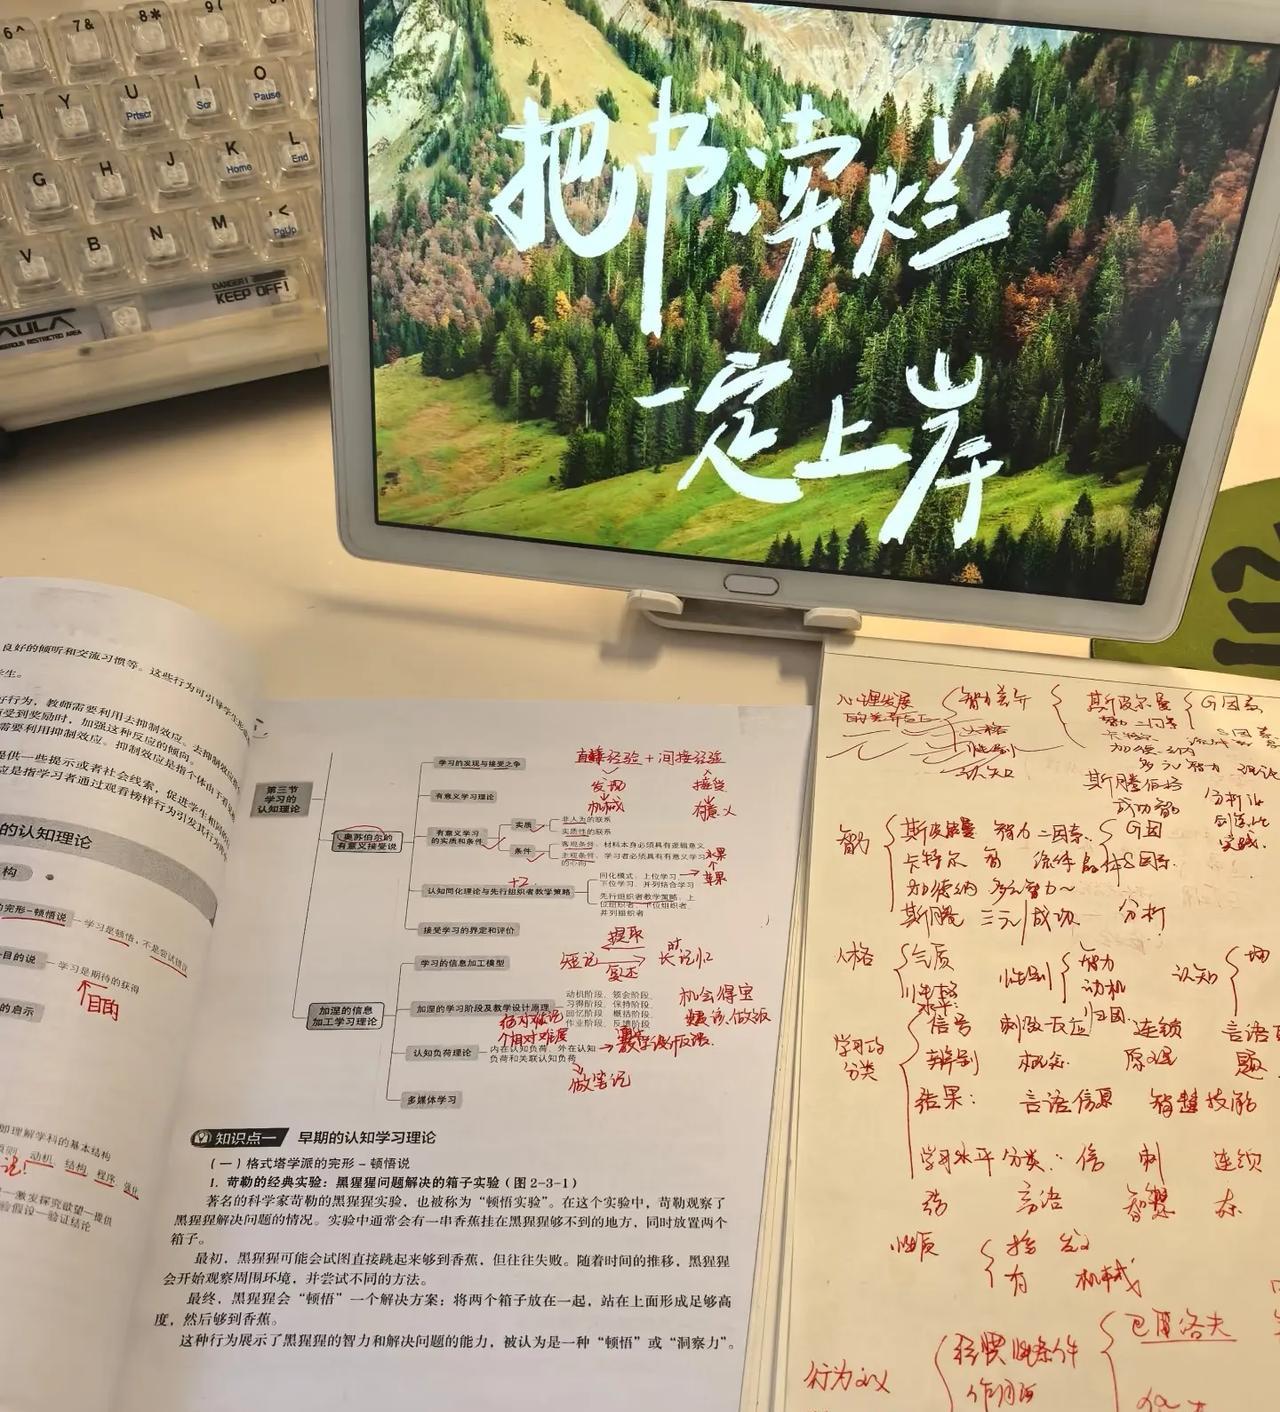 6^
7&
8*
9(
Y
U
Prtscr
I
Scr
O
Pause
G
H
J
K
Home
L
End
V
B
N
M
,<
PgUp
AULA
DANGER!
KEEP OFF!
把书读烂
一定上岸
良好的倾听和交流习惯等。这些行为可引导学生
学生。
好行为，教师需要利用去抑制效应。去抑制效应
受到奖励时，加强这种反应的倾向。
需要利用抑制效应。抑制效应是指个体由于看
提供一些提示或者社会线索，促进学生
应是指学习者通过观看榜样行为引发其行为
的认知理论
构
的完形-顿悟说
学习是顿悟，不是尝试错误
目的说
学习是期待的获得
目的
的启示
如理解学科的基本结构
原则 动机、结构、程序、强化
激发探究欲望—提供
验假设—验证结论
第三节
学习的
认知理论
学习的发现与接受之争
有意义学习理论
奥苏伯尔的
有意义接受说
有意义学习
的实质和条件
实质
非人为的联系
实质性的联系
条件
客观条件：材料本身必须具有逻辑意义
主观条件：学习者必须具有有意义学习
的心向
水果
苹果
+2
认知同化理论与先行组织者教学策略
同化模式：上位学习、
下位学习、并列结合学习
先行组织者教学策略：上
位组织者、下位组织者、
并列组织者
接受学习的界定和评价
经验+间接经验
发现
接受
机械
有意义
提取
短记
长时记忆
复述
学习的信息加工模型
加涅的信息
加工学习理论
加涅的学习阶段及教学设计原理
动机阶段、领会阶段、
习得阶段、保持阶段、
回忆阶段、概括阶段、
作业阶段、反馈阶段
认知负荷理论
内在认知负荷、外在认知
负荷和关联认知负荷
做笔记
多媒体学习
知识点一 早期的认知学习理论
（一）格式塔学派的完形-顿悟说
1. 苛勒的经典实验：黑猩猩问题解决的箱子实验（图 2-3-1）
著名的科学家苛勒的黑猩猩实验，也被称为“顿悟实验”。在这个实验中，苛勒观察了
黑猩猩解决问题的情况。实验中通常会有一串香蕉挂在黑猩猩够不到的地方，同时放置两个
箱子。
最初，黑猩猩可能会试图直接跳起来够到香蕉，但往往失败。随着时间的推移，黑猩猩
会开始观察周围环境，并尝试不同的方法。
最终，黑猩猩会“顿悟”一个解决方案：将两个箱子放在一起，站在上面形成足够高
度，然后够到香蕉。
这种行为展示了黑猩猩的智力和解决问题的能力，被认为是一种“顿悟”或“洞察力”。
心理发展
智力差异
斯皮尔曼
G因素
S因素
人格
性别
认知
加德纳
多元智力理论
斯腾伯格
成功智力
分析
实践
智力
斯皮尔曼 智力二因素
G因
S因素
卡特尔
流体 晶体
加德纳 多元智力
斯腾 三元/成功 分析
人格
气质
性格
性别
智力
动机
归因
认知
学习的
分类
水平
信号 刺激-反应 连锁 言语
辨别 概念 原理
结果： 言语信息 智慧技能
学习水平分类： 信 刺 连锁
言语
性质
接 发
有 机械
行为主义
经典性条件
巴甫洛夫